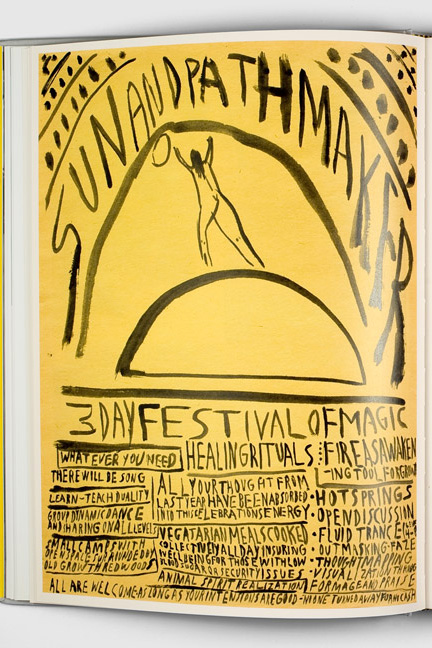 SUN AND PATH MAKER
3 DAY FESTIVAL OF MAGIC
WHAT EVER YOU NEED
THERE WILL BE SONG
LEARN-TEACH DUALITY
GROUP DYNAMIC DANCE
AND SHARING ON ALL LEVELS
SMALL CAMPS WITH
OLD GROWTH REDWOODS
HEALING RITUALS
ALL YOUR THOUGHT FROM
LAST YEAR HAVE BEEN ABSORBED
INTO THIS CELEBRATIONS ENERGY
VEGATARIAN MEALS COOKED
COLLECTIVELY ALL DAY INSURING
WELL BEING FOR THOSE WITH LOW
BLOOD SUGAR OR SECURITY ISSUES
ANIMAL SPIRIT REALIZATION
FIRE AS AWAKEN
-ING TOOL FOR GROW
• HOT SPRINGS
• OPEN DISCUSSION
• FLUID TRANCE
• OUT MASKING-FAZE
• THOUGHT MAPPING
• VISUAL
FORMAGE AND PRAISE
ALL ARE WELCOME AS LONG AS YOUR INTENTIONS ARE GOOD - NO ONE TURNED AWAY FOR NO CASH